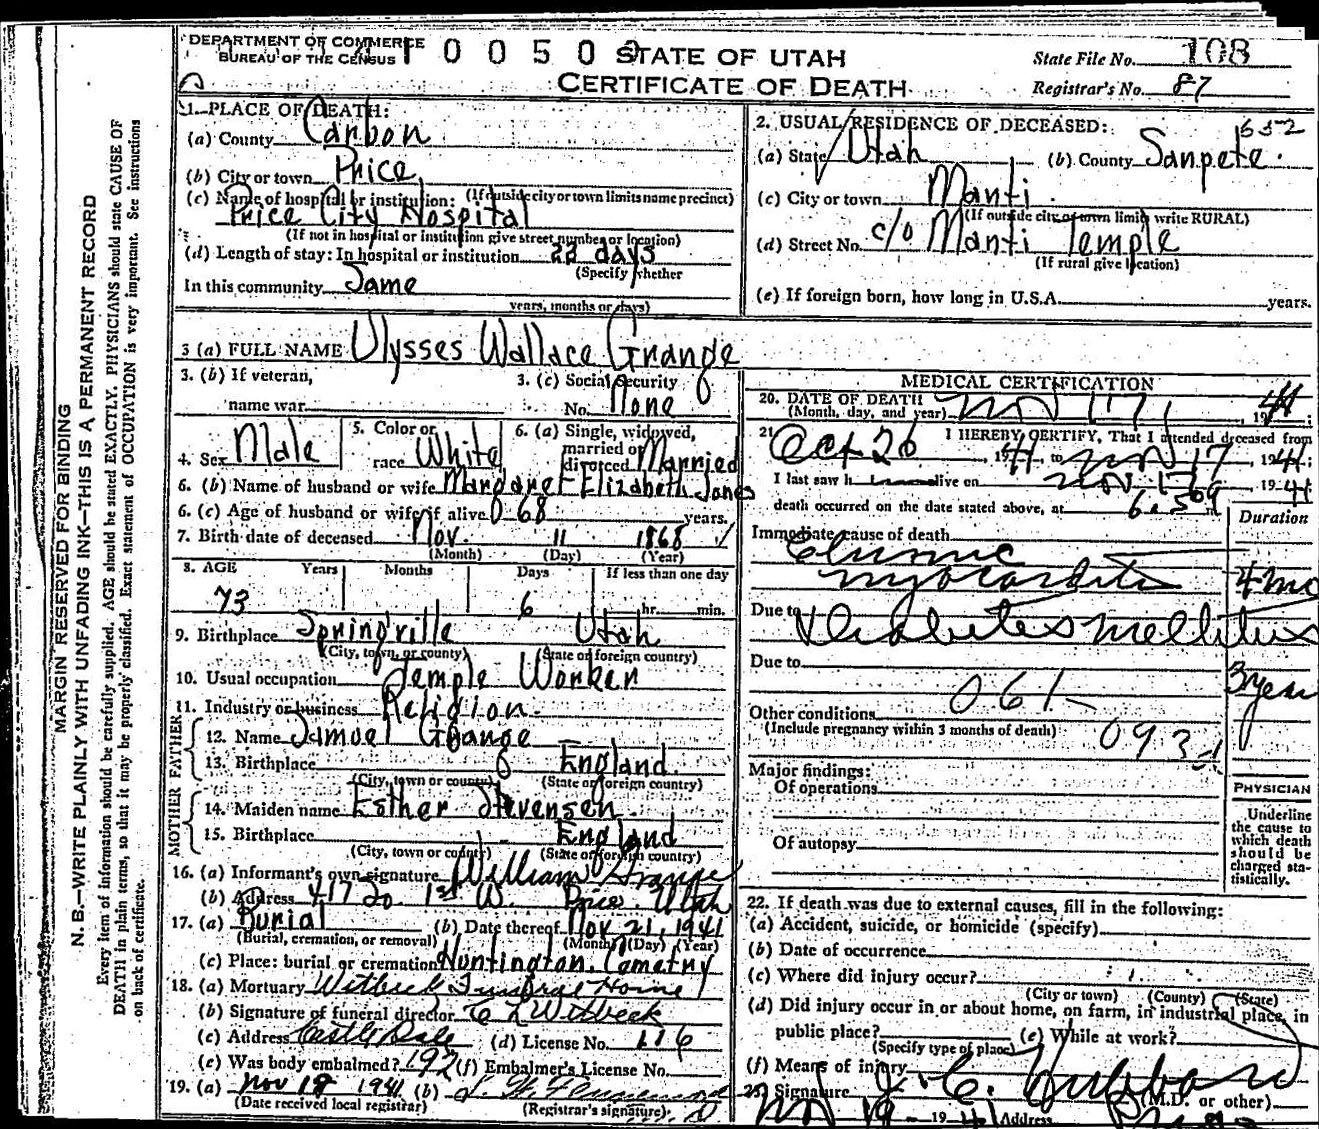 DEPARTMENT OF COMMERCE
BUREAU OF THE CENSUS
0 0 5 0
STATE OF UTAH
CERTIFICATE OF DEATH
State File No. 108
Registrar's No. 87
MARGIN RESERVED FOR BINDING
N. B.—WRITE PLAINLY WITH UNFADING INK—THIS IS A PERMANENT RECORD
Every item of information should be carefully supplied. AGE should be stated EXACTLY. PHYSICIANS should state CAUSE OF
DEATH in plain terms, so that it may be properly classified. Exact statement of OCCUPATION is very important. See instructions
on back of certificate.
1. PLACE OF DEATH:
(a) County Carbon
(b) City or town Price
(If outside city or town limits name precinct)
(c) Name of hospital or institution:
Price City Hospital
(If not in hospital or institution give street number or location)
(d) Length of stay: In hospital or institution 22 days
(Specify whether
In this community Same
years, months or days)
2. USUAL RESIDENCE OF DECEASED:
(a) State Utah (b) County Sanpete.
(c) City or town Manti
(If outside city or town limits write RURAL)
(d) Street No. c/o Manti Temple
(If rural give location)
(e) If foreign born, how long in U.S.A. years.
3 (a) FULL NAME Ulysses Wallace Grange
3. (b) If veteran,
name war
3. (c) Social Security
No. None
4. Sex Male
5. Color or
race White
6. (a) Single, widowed,
married or
divorced Married
6. (b) Name of husband or wife Margaret Elizabeth Jones
6. (c) Age of husband or wife if alive 68 years.
7. Birth date of deceased Nov. 11 1868
(Month) (Day) (Year)
8. AGE Years Months Days If less than one day
73 6 hr. min.
9. Birthplace Springville Utah
(City, town, or county) (State or foreign country)
10. Usual occupation Temple Worker
11. Industry or business Religion.
FATHER
12. Name Samuel Grange
13. Birthplace England.
(City, town or county) (State or foreign country)
MOTHER
14. Maiden name Esther Stevensen
15. Birthplace England
(City, town or county) (State or foreign country)
16. (a) Informant's own signature William Grange
(b) Address 417 So. 1st W. Price, Utah
17. (a) Burial (b) Date thereof Nov 21, 1941
(Burial, cremation, or removal) (Month) (Day) (Year)
(c) Place: burial or cremation Huntington. Cemetry
18. (a) Mortuary Witbeck Funeral Home
(b) Signature of funeral director C L Witbeck
(c) Address Castle Dale (d) License No. 116
(e) Was body embalmed? (f) Embalmer's License No.
19. (a) Nov 18 1941 (b)
(Date received local registrar) (Registrar's signature)
MEDICAL CERTIFICATION
20. DATE OF DEATH
(Month, day, and year) Nov 17, 1941;
21. I HEREBY CERTIFY, That I attended deceased from
Oct 26, 1941 to Nov 17, 1941;
I last saw h alive on Nov 17, 1941
death occurred on the date stated above, at
Duration
Immediate cause of death
Chronic
myocarditis 4 mo
Due to Diabetes mellitus
Due to
3 year
061
Other conditions
(Include pregnancy within 3 months of death)
093
Major findings:
Of operations
Of autopsy
PHYSICIAN
Underline
the cause to
which death
should be
charged sta-
tistically.
22. If death was due to external causes, fill in the following:
(a) Accident, suicide, or homicide (specify)
(b) Date of occurrence
(c) Where did injury occur?
(City or town) (County) (State)
(d) Did injury occur in or about home, on farm, in industrial place, in
public place? (e) While at work?
(Specify type of place)
(f) Means of injury
23. Signature J. C. Hubbard
(M.D. or other)
Nov 19 1941 Address